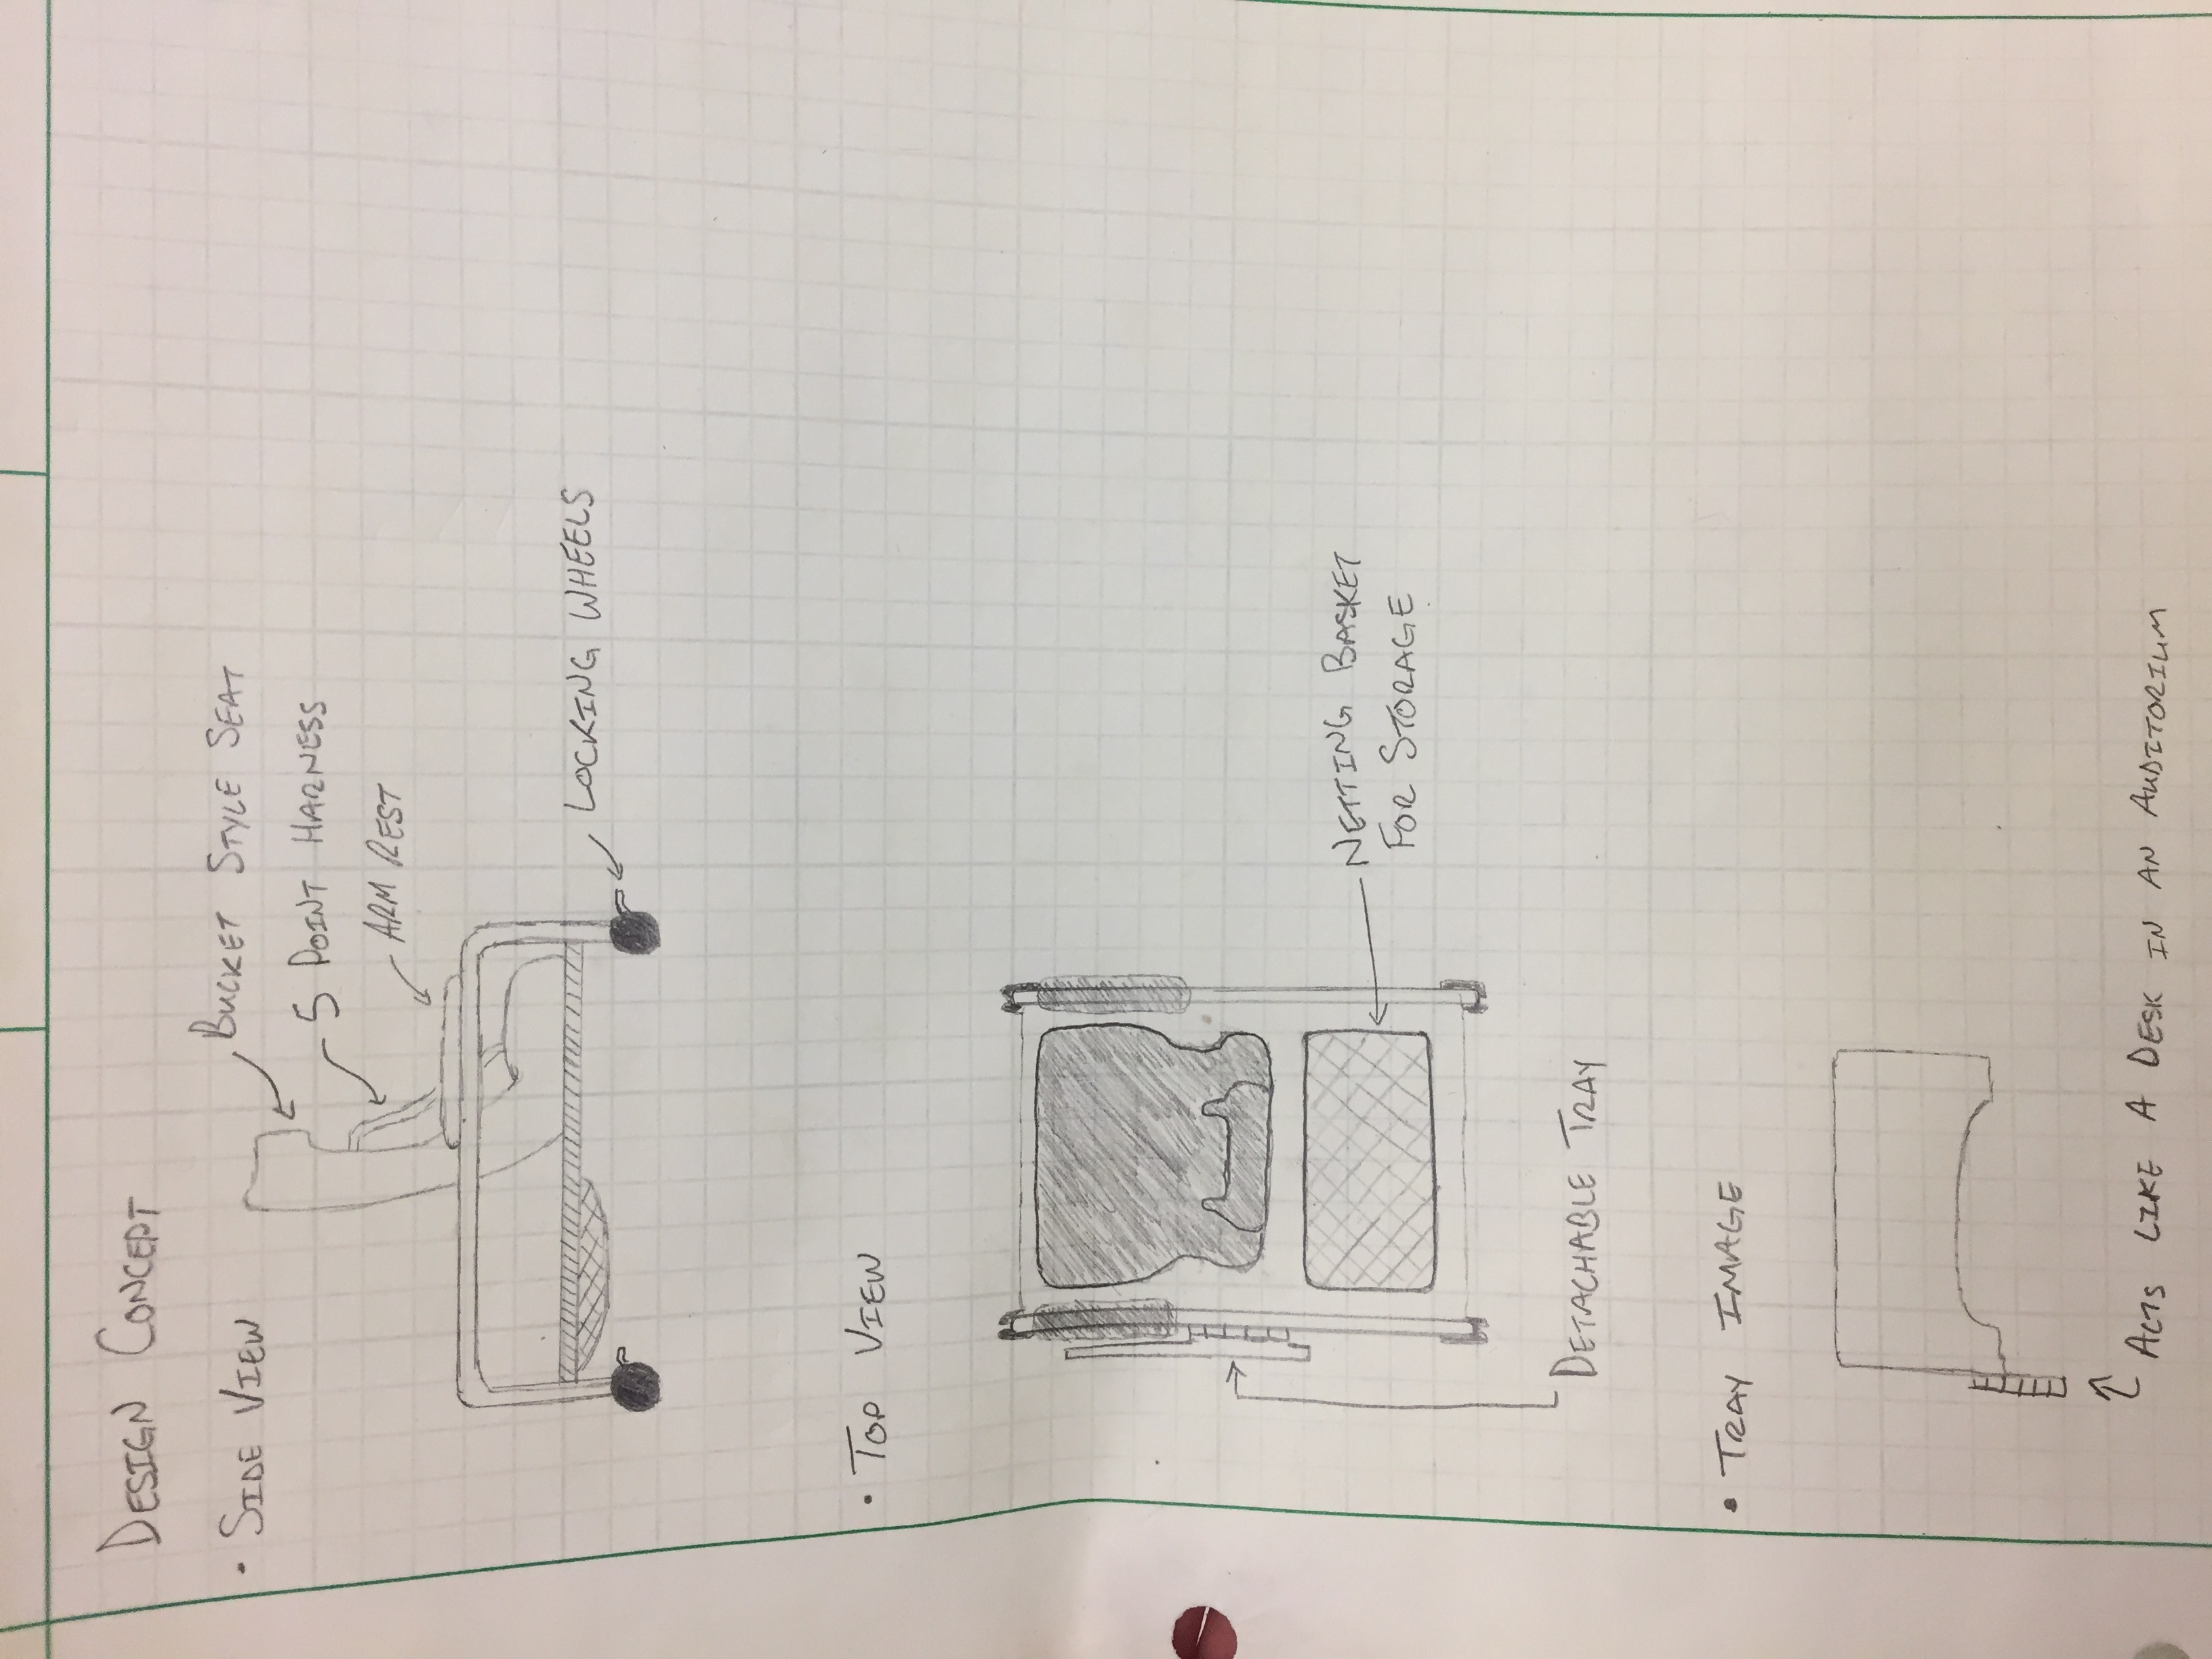 DESIGN CONCEPT
• SIDE VIEW
BUCKET STYLE SEAT
5 POINT HARNESS
ARM REST
LOCKING WHEELS
• TOP VIEW
NETTING BASKET
FOR STORAGE
DETACHABLE TRAY
• TRAY IMAGE
ACTS LIKE A DESK IN AN AUDITORIUM